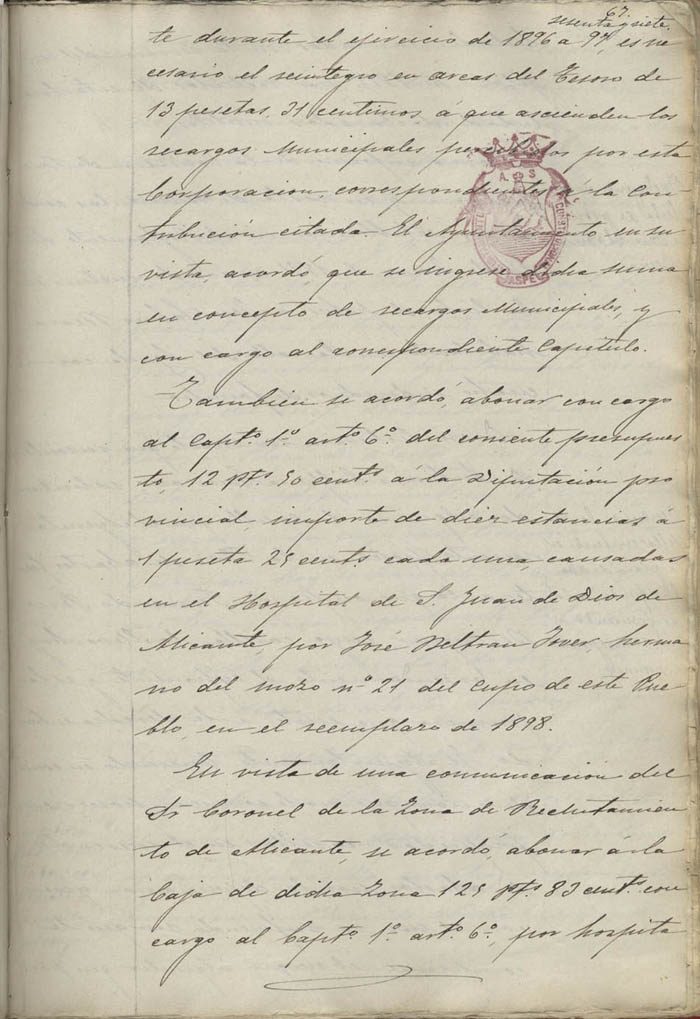 67.
sesenta y siete.
te durante el ejercicio de 1896 a 97, es ne
cesario el reintegro en arcas del Tesoro de
13 pesetas, 31 centimos, á que ascienden los
recargos Municipales percibidos por esta
Corporacion, correspondientes á la con
tribución citada. El Ayuntamiento en su
vista, acordó, que se ingrese dicha suma
en concepto de recargos Municipales, y
con cargo al correspondiente Capitulo.
Tambien se acordó, abonar con cargo
al Capto. 1º. arto. 6º. del corriente presupues
to, 12 pts. 50 cents. á la Diputación pro
vincial, importe de diez estancias á
1 peseta 25 cents. cada una, causadas
en el Hospital de S. Juan de Dios de
Alicante, por José Beltran Jover, herma
no del mozo nº 21 del cupo de este Pue
blo, en el reemplazo de 1898.
En vista de una comunicacion del
Sr Coronel de la Zona de Reclutamien
to de Alicante, se acordó, abonar á la
Caja de dicha Zona 125 pts. 83 cents. con
cargo al Capto. 1º. arto. 6º., por hospita
A. S